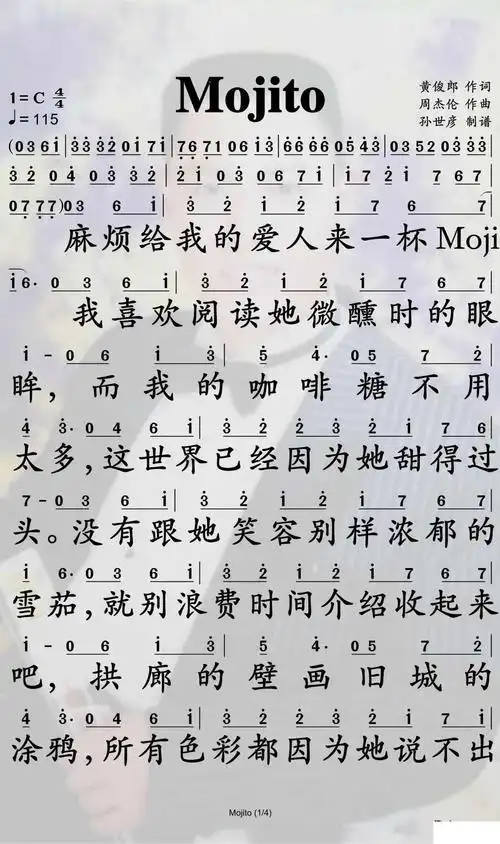 Mojito
1=C 4/4
♩=115
黄俊郎 作词
周杰伦 作曲
孙世彦 制谱
(0361|33320171|76710613|66660543|03520333|
32 04 03 32|21 03 06 71|17 21 767|
07 77)03 6 1|3 2 1 2 1 7 6 7|
麻烦给我的爱人来一杯Moji
16· 03 6 1|3 2 1 2 1 7 6 7|
我喜欢阅读她微醺时的眼
1 - 06 1 3|5 4· 05 7 2|
眸,而我的咖啡糖不用
4 3· 04 6 1|3 2 3 2 1 7 6 7|
太多,这世界已经因为她甜得过
7 - 03 6 1|3 2 1 2 1 7 6 7|
头。没有跟她笑容别样浓郁的
1 6· 03 6 1|3 2 1 2 1 7 6 7|
雪茄,就别浪费时间介绍收起来
1 - 06 1 3|5 4· 05 7 2|
吧,拱廊的壁画旧城的
4 3· 04 6 1|3 2 3 2 1 7 6 7|
涂鸦,所有色彩都因为她说不出
Mojito (1/4)